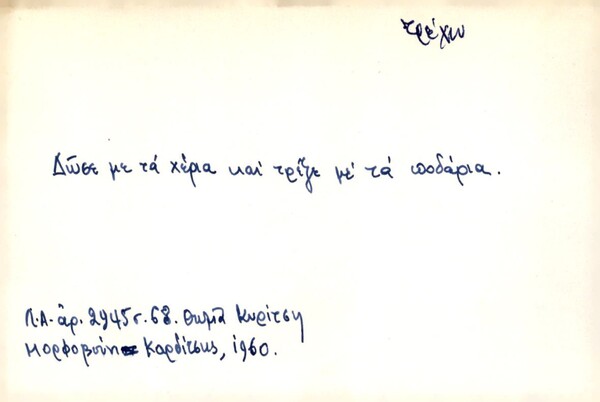 τρέχω
Δῶσε με τά χέρια καί τρέξε μέ τά ποδάρια.
Λ.Α. ἀρ. 2945 σ. 68. Θωμᾶ Κυρίτση
Μορφοβούνι Καρδίτσης, 1960.